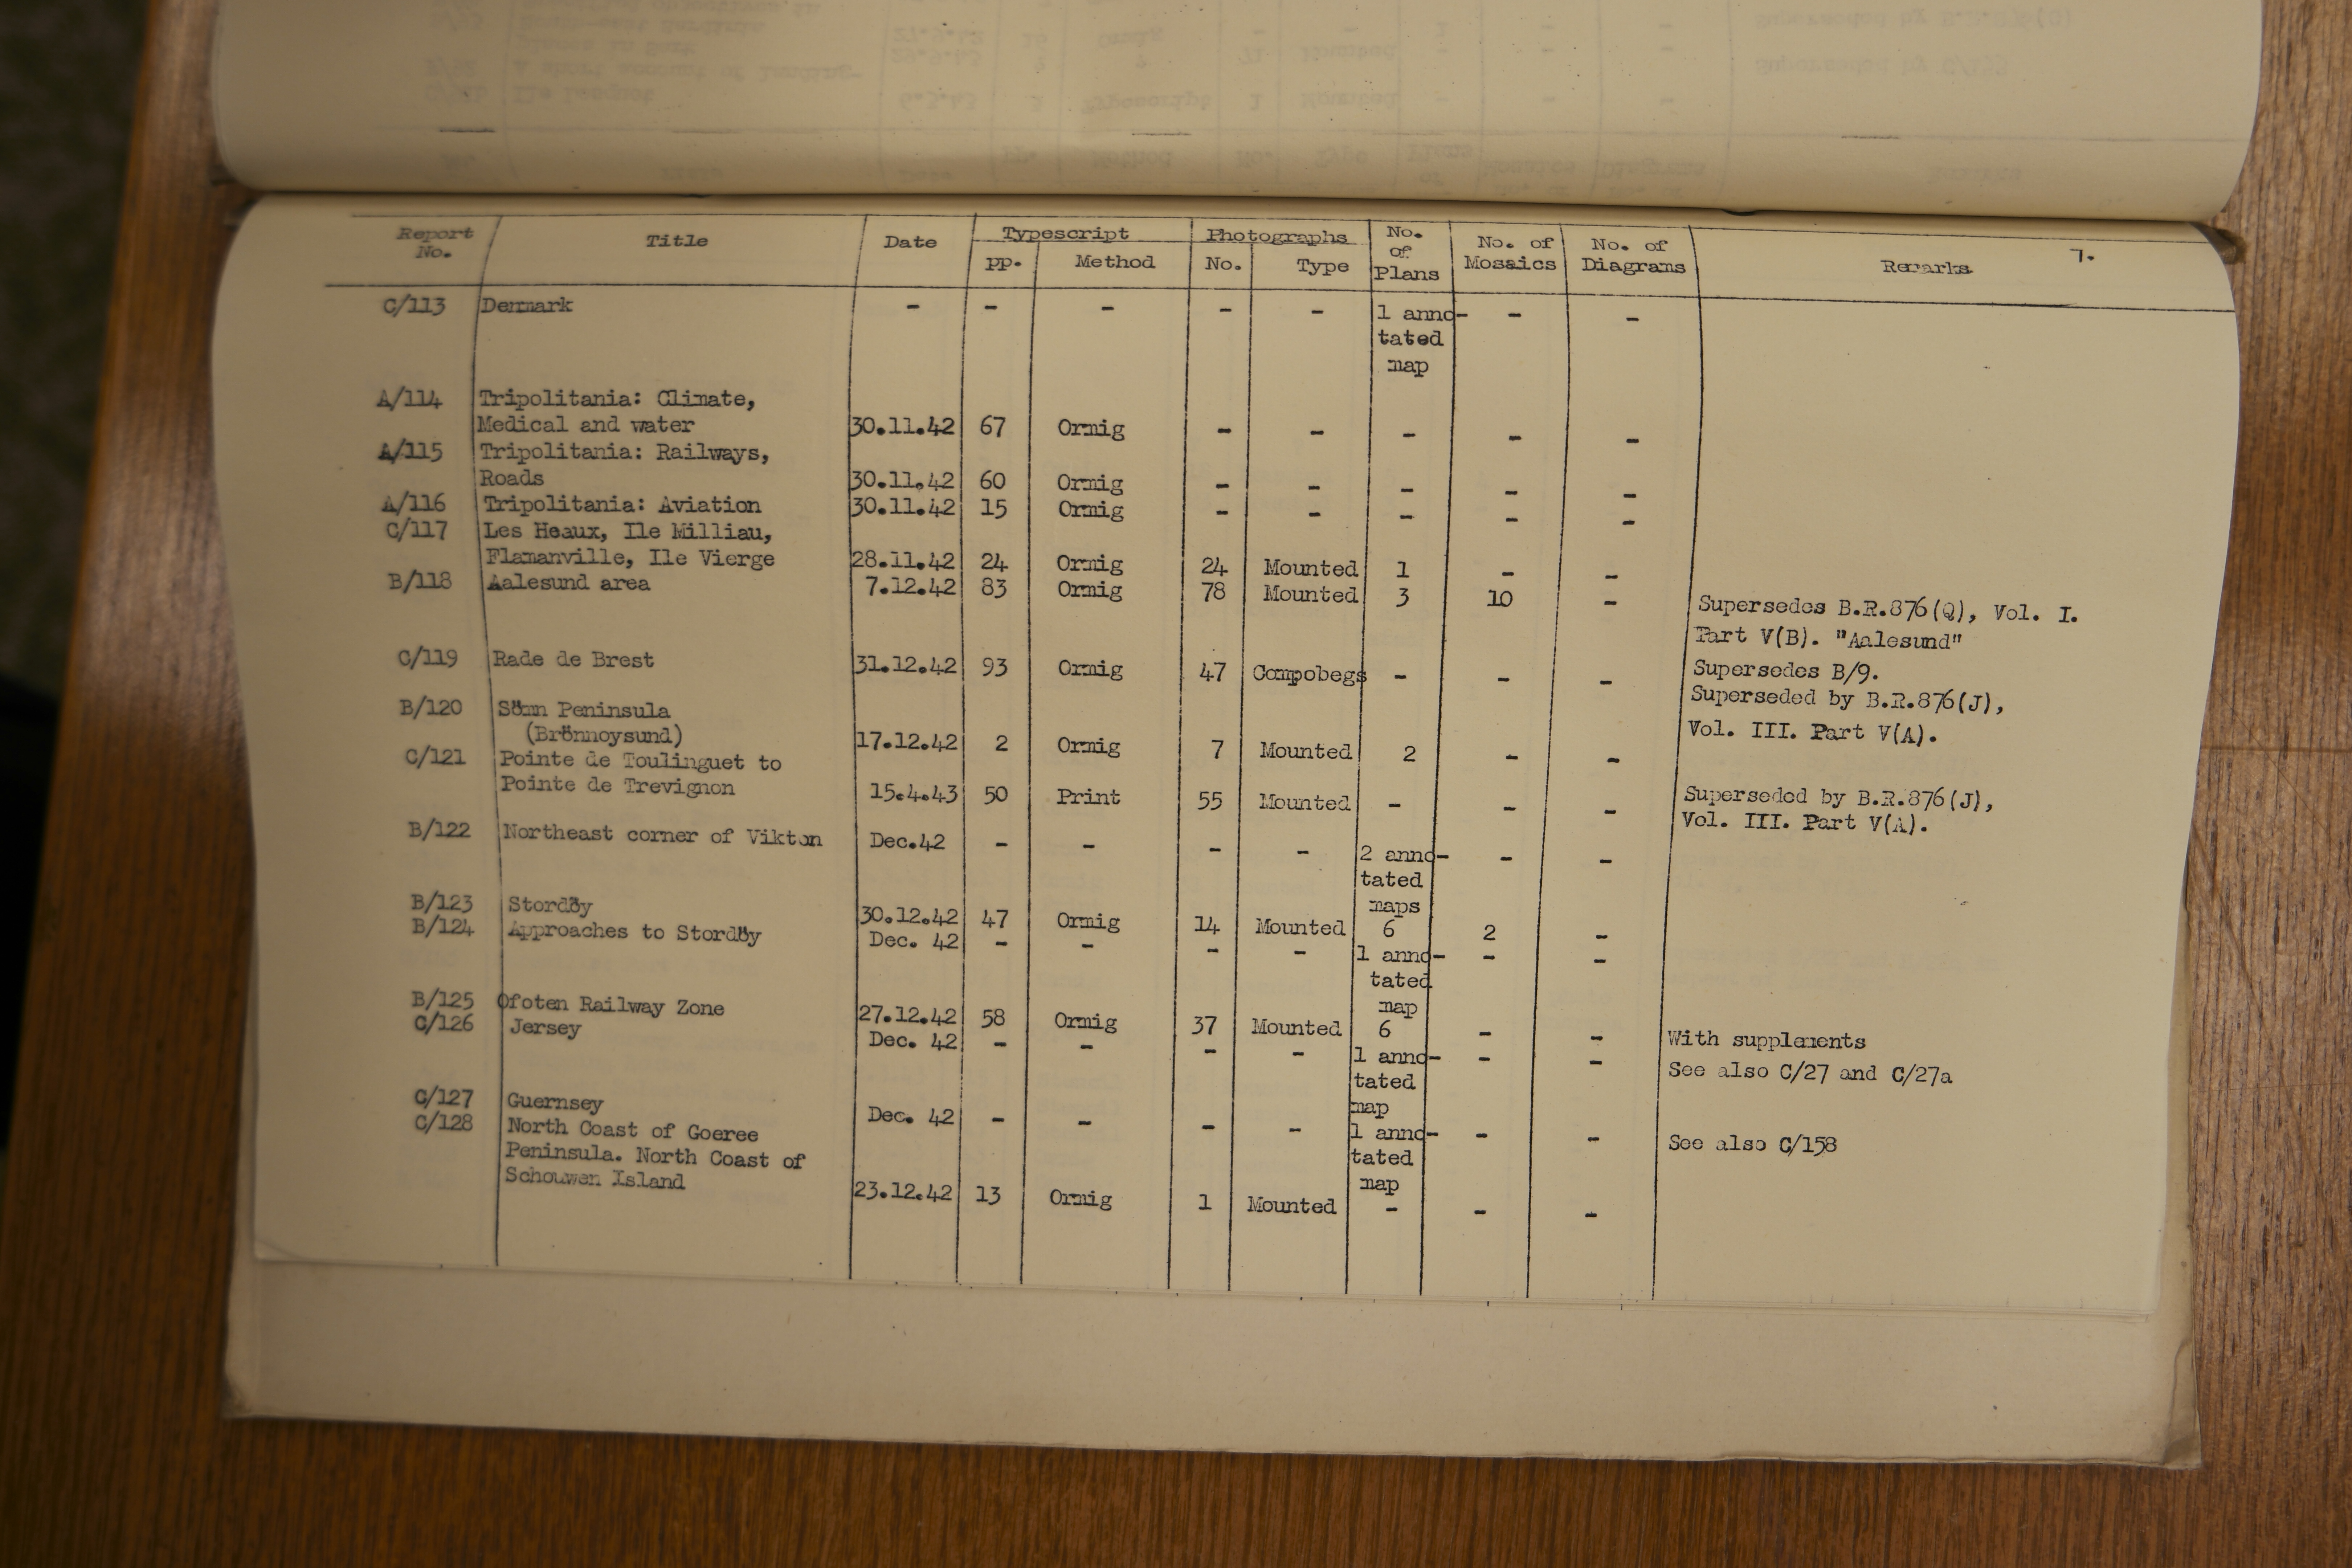 Report No. Title Date Typescript pp. Method Photographs No. Type No. of Plans No. of Mosaics No. of Diagrams Remarks 7.
C/113 Denmark - - - - - 1 anno- - -
tated
map
A/114 Tripolitania: Climate,
Medical and water 30.11.42 67 Ormig - - - - -
A/115 Tripolitania: Railways,
Roads 30.11.42 60 Ormig - - - - -
A/116 Tripolitania: Aviation 30.11.42 15 Ormig - - - - -
C/117 Les Heaux, Ile Milliau,
Flamanville, Ile Vierge 28.11.42 24 Ormig 24 Mounted 1 - -
B/118 Aalesund area 7.12.42 83 Ormig 78 Mounted 3 10 - Supersedes B.R.876(Q), Vol. I.
Part V(B). "Aalesund"
C/119 Rade de Brest 31.12.42 93 Ormig 47 Compobegs - - - Supersedes B/9.
Superseded by B.R.876(J),
Vol. III. Part V(A).
B/120 Sömn Peninsula
(Brönnoysund) 17.12.42 2 Ormig 7 Mounted 2 - -
C/121 Pointe de Toulinguet to
Pointe de Trevignon 15.4.43 50 Print 55 Mounted - - - Superseded by B.R.876(J),
Vol. III. Part V(A).
B/122 Northeast corner of Dec.42 - - - - 2 anno- - -
tated
maps
B/123 Stordöy 30.12.42 47 Ormig 14 Mounted 6 2 -
B/124 Approaches to Stordöy Dec. 42 - - - - 1 anno- - -
tated
map
B/125 Ofoten Railway Zone 27.12.42 58 Ormig 37 Mounted 6 - - With supplements
C/126 Jersey Dec. 42 - - - - 1 anno- - - See also C/27 and C/27a
tated
map
C/127 Guernsey Dec. 42 - - - - 1 anno- - - See also C/158
tated
map
C/128 North Coast of Goeree
Peninsula. North Coast of
Schouwen Island 23.12.42 13 Ormig 1 Mounted - - -